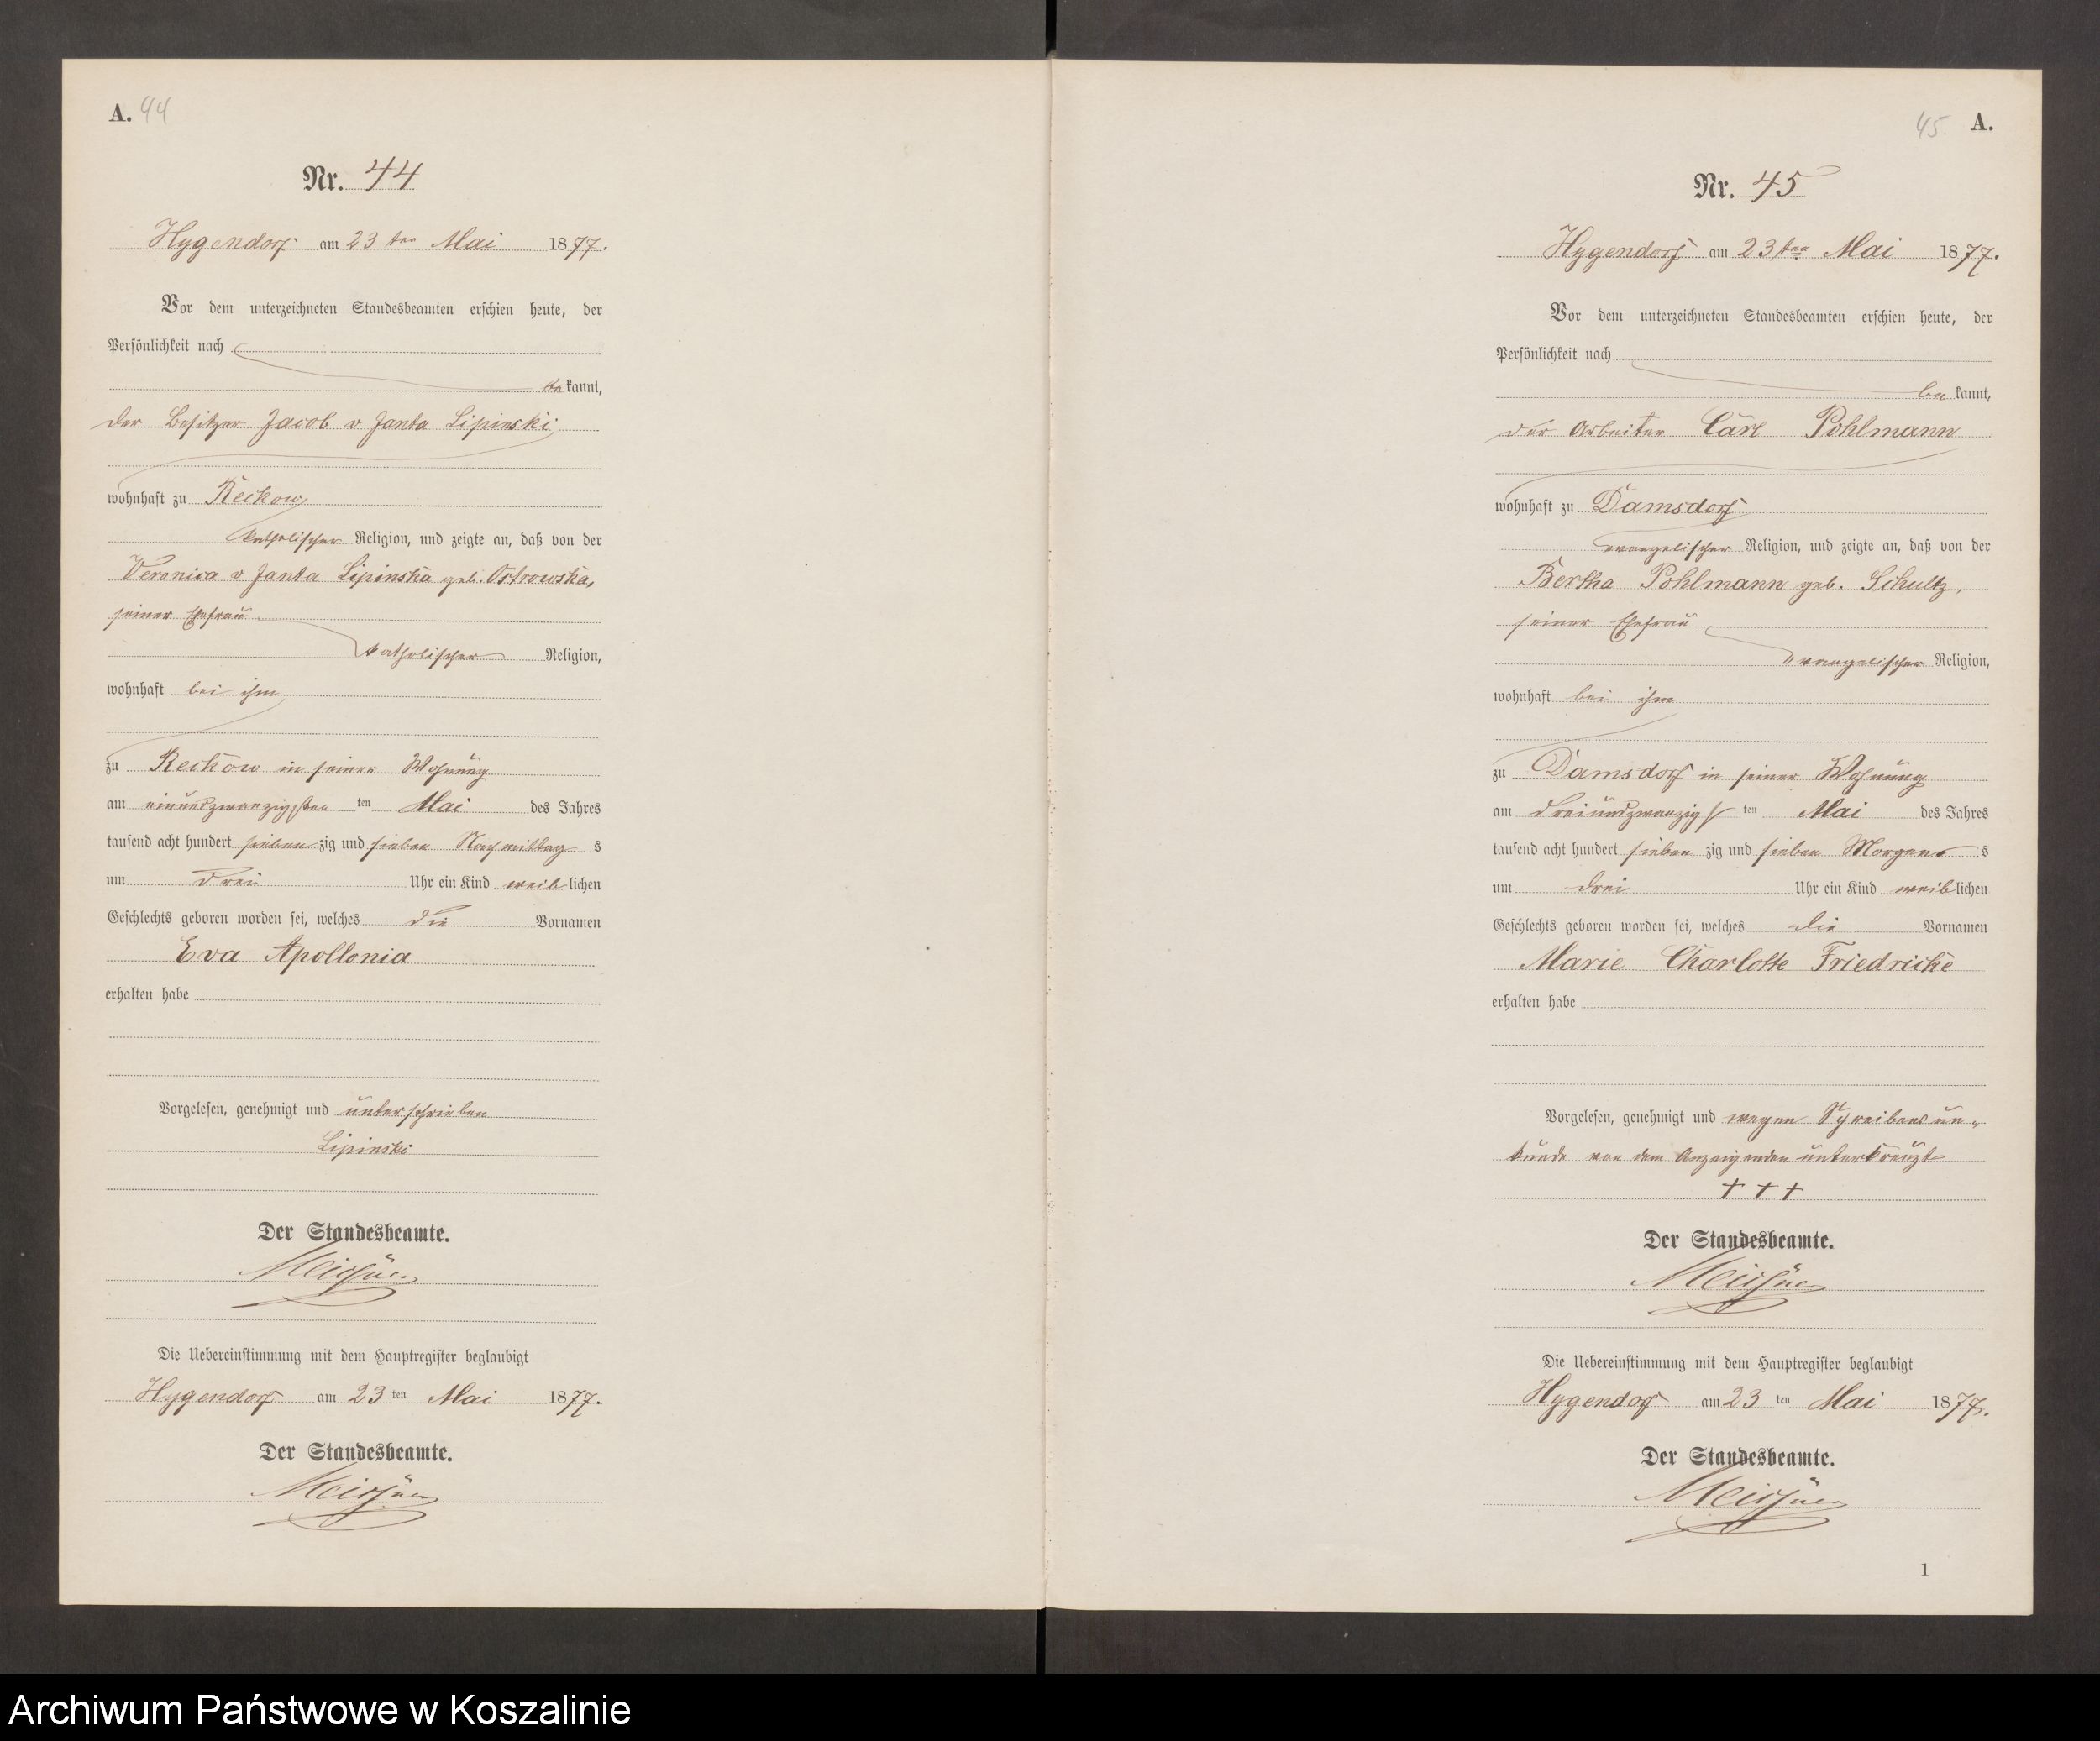 A. 44
Nr. 44
Hygendorf am 23ten Mai 1877.
Vor dem unterzeichneten Standesbeamten erschien heute, der
Persönlichkeit nach
bekannt,
der Besitzer Jacob v Janta Lipinski
wohnhaft zu Reckow
katholischer Religion, und zeigte an, daß von der
Veronica v Janta Lipinska geb. Ostrowska,
seiner Ehefrau
katholischer Religion,
wohnhaft bei ihm
zu Reckow in seiner Wohnung
am einundzwanzigsten ten Mai des Jahres
tausend acht hundert siebenzig und sieben Nachmittags
um drei Uhr ein Kind weiblichen
Geschlechts geboren worden sei, welches die Vornamen
Eva Apollonia
erhalten habe
Vorgelesen, genehmigt und unterschrieben
Lipinski
Der Standesbeamte.
Die Uebereinstimmung mit dem Hauptregister beglaubigt
Hygendorf am 23ten Mai 1877.
Der Standesbeamte.
45 A.
Nr. 45
Hygendorf am 23ten Mai 1877.
Vor dem unterzeichneten Standesbeamten erschien heute, der
Persönlichkeit nach
bekannt,
der Arbeiter Carl Pohlmann
wohnhaft zu Damsdorf
evangelischer Religion, und zeigte an, daß von der
Bertha Pohlmann geb. Schultz,
seiner Ehefrau
evangelischer Religion,
wohnhaft bei ihm
zu Damsdorf in seiner Wohnung
am dreiundzwanzigsten Mai des Jahres
tausend acht hundert siebenzig und sieben Morgens s
um drei Uhr ein Kind weiblichen
Geschlechts geboren worden sei, welches die Vornamen
Marie Charlotte Friedricke
erhalten habe
Vorgelesen, genehmigt und wegen Schreibensun-
kunde von dem Anzeigenden unterkreuzt
+ + +
Der Standesbeamte.
Die Uebereinstimmung mit dem Hauptregister beglaubigt
Hygendorf am 23 ten Mai 1877.
Der Standesbeamte.
1
Archiwum Państwowe w Koszalinie